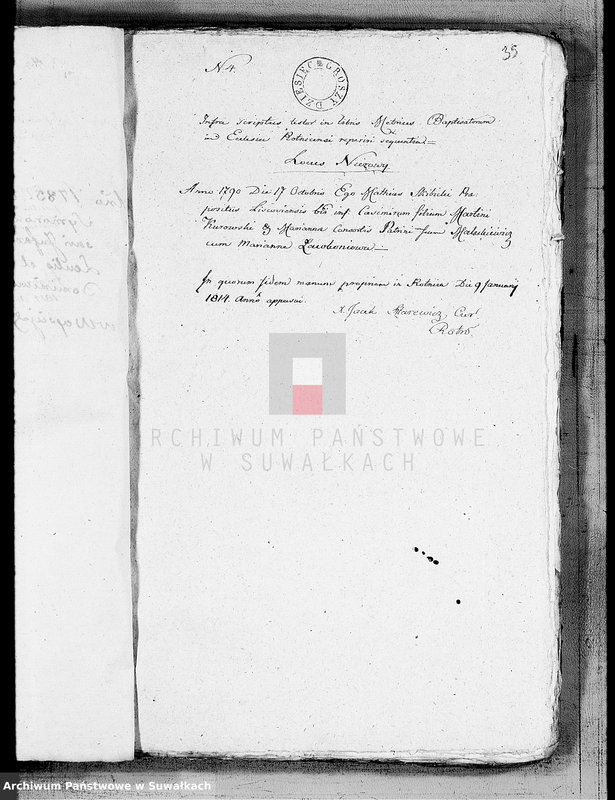 35
N 4.
DZIESIĘC GROSZY
Infra scriptus testor in Libris Metrices Baptisatorum
in Eclesia Rotnicensi reperiri sequentia =
Locus Nieżowy
Anno 1790 Die 17 Octobris Ego Mathias Skibicki Præ
positus Liscoviensis Casimirum filium Martini
Kurowski & Marianna Patrini
cum Marianna
In quorum fidem manum propriam in Rotnica Die 9 January
1814. Anno apposui.
X. Jacek Cur
Rotn
ARCHIWUM PAŃSTWOWE
W SUWAŁKACH
Archiwum Państwowe w Suwałkach